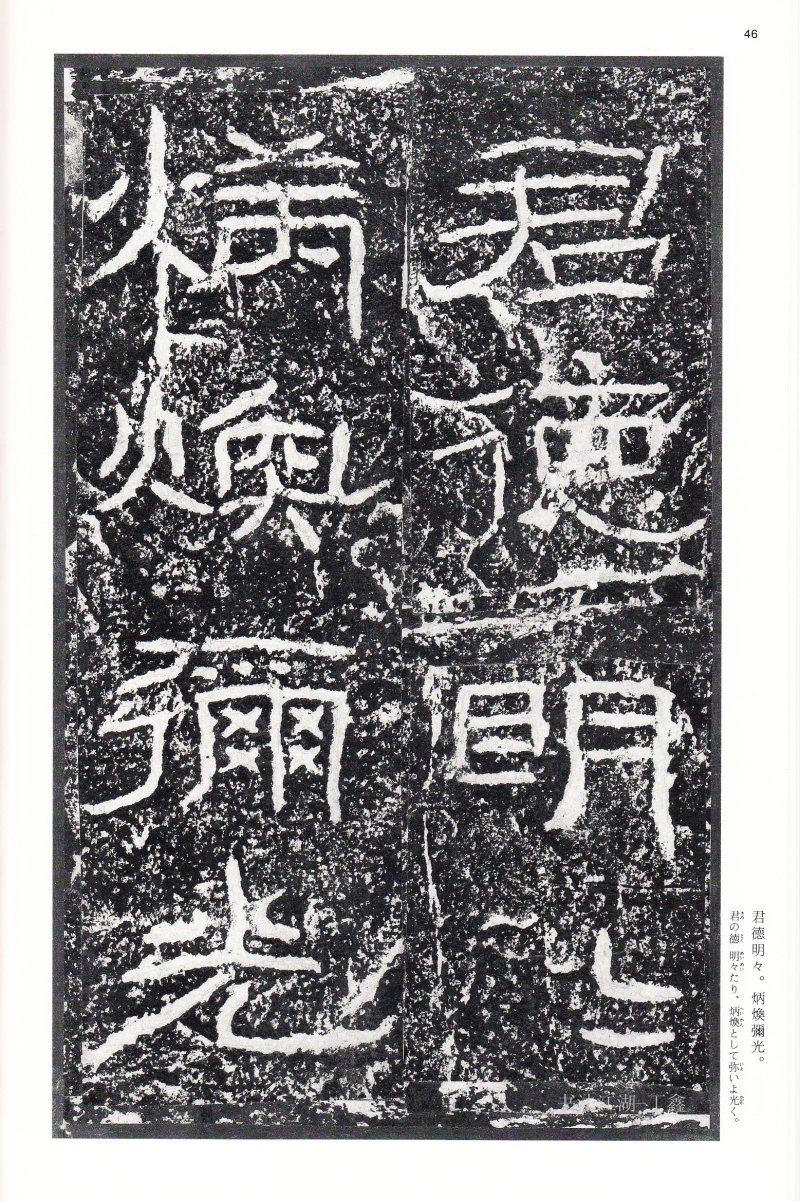 46
君德明〻
炳煥彌光
君德明々。炳煥彌光。
君の徳明々たり、炳煥として弥いよ光く。